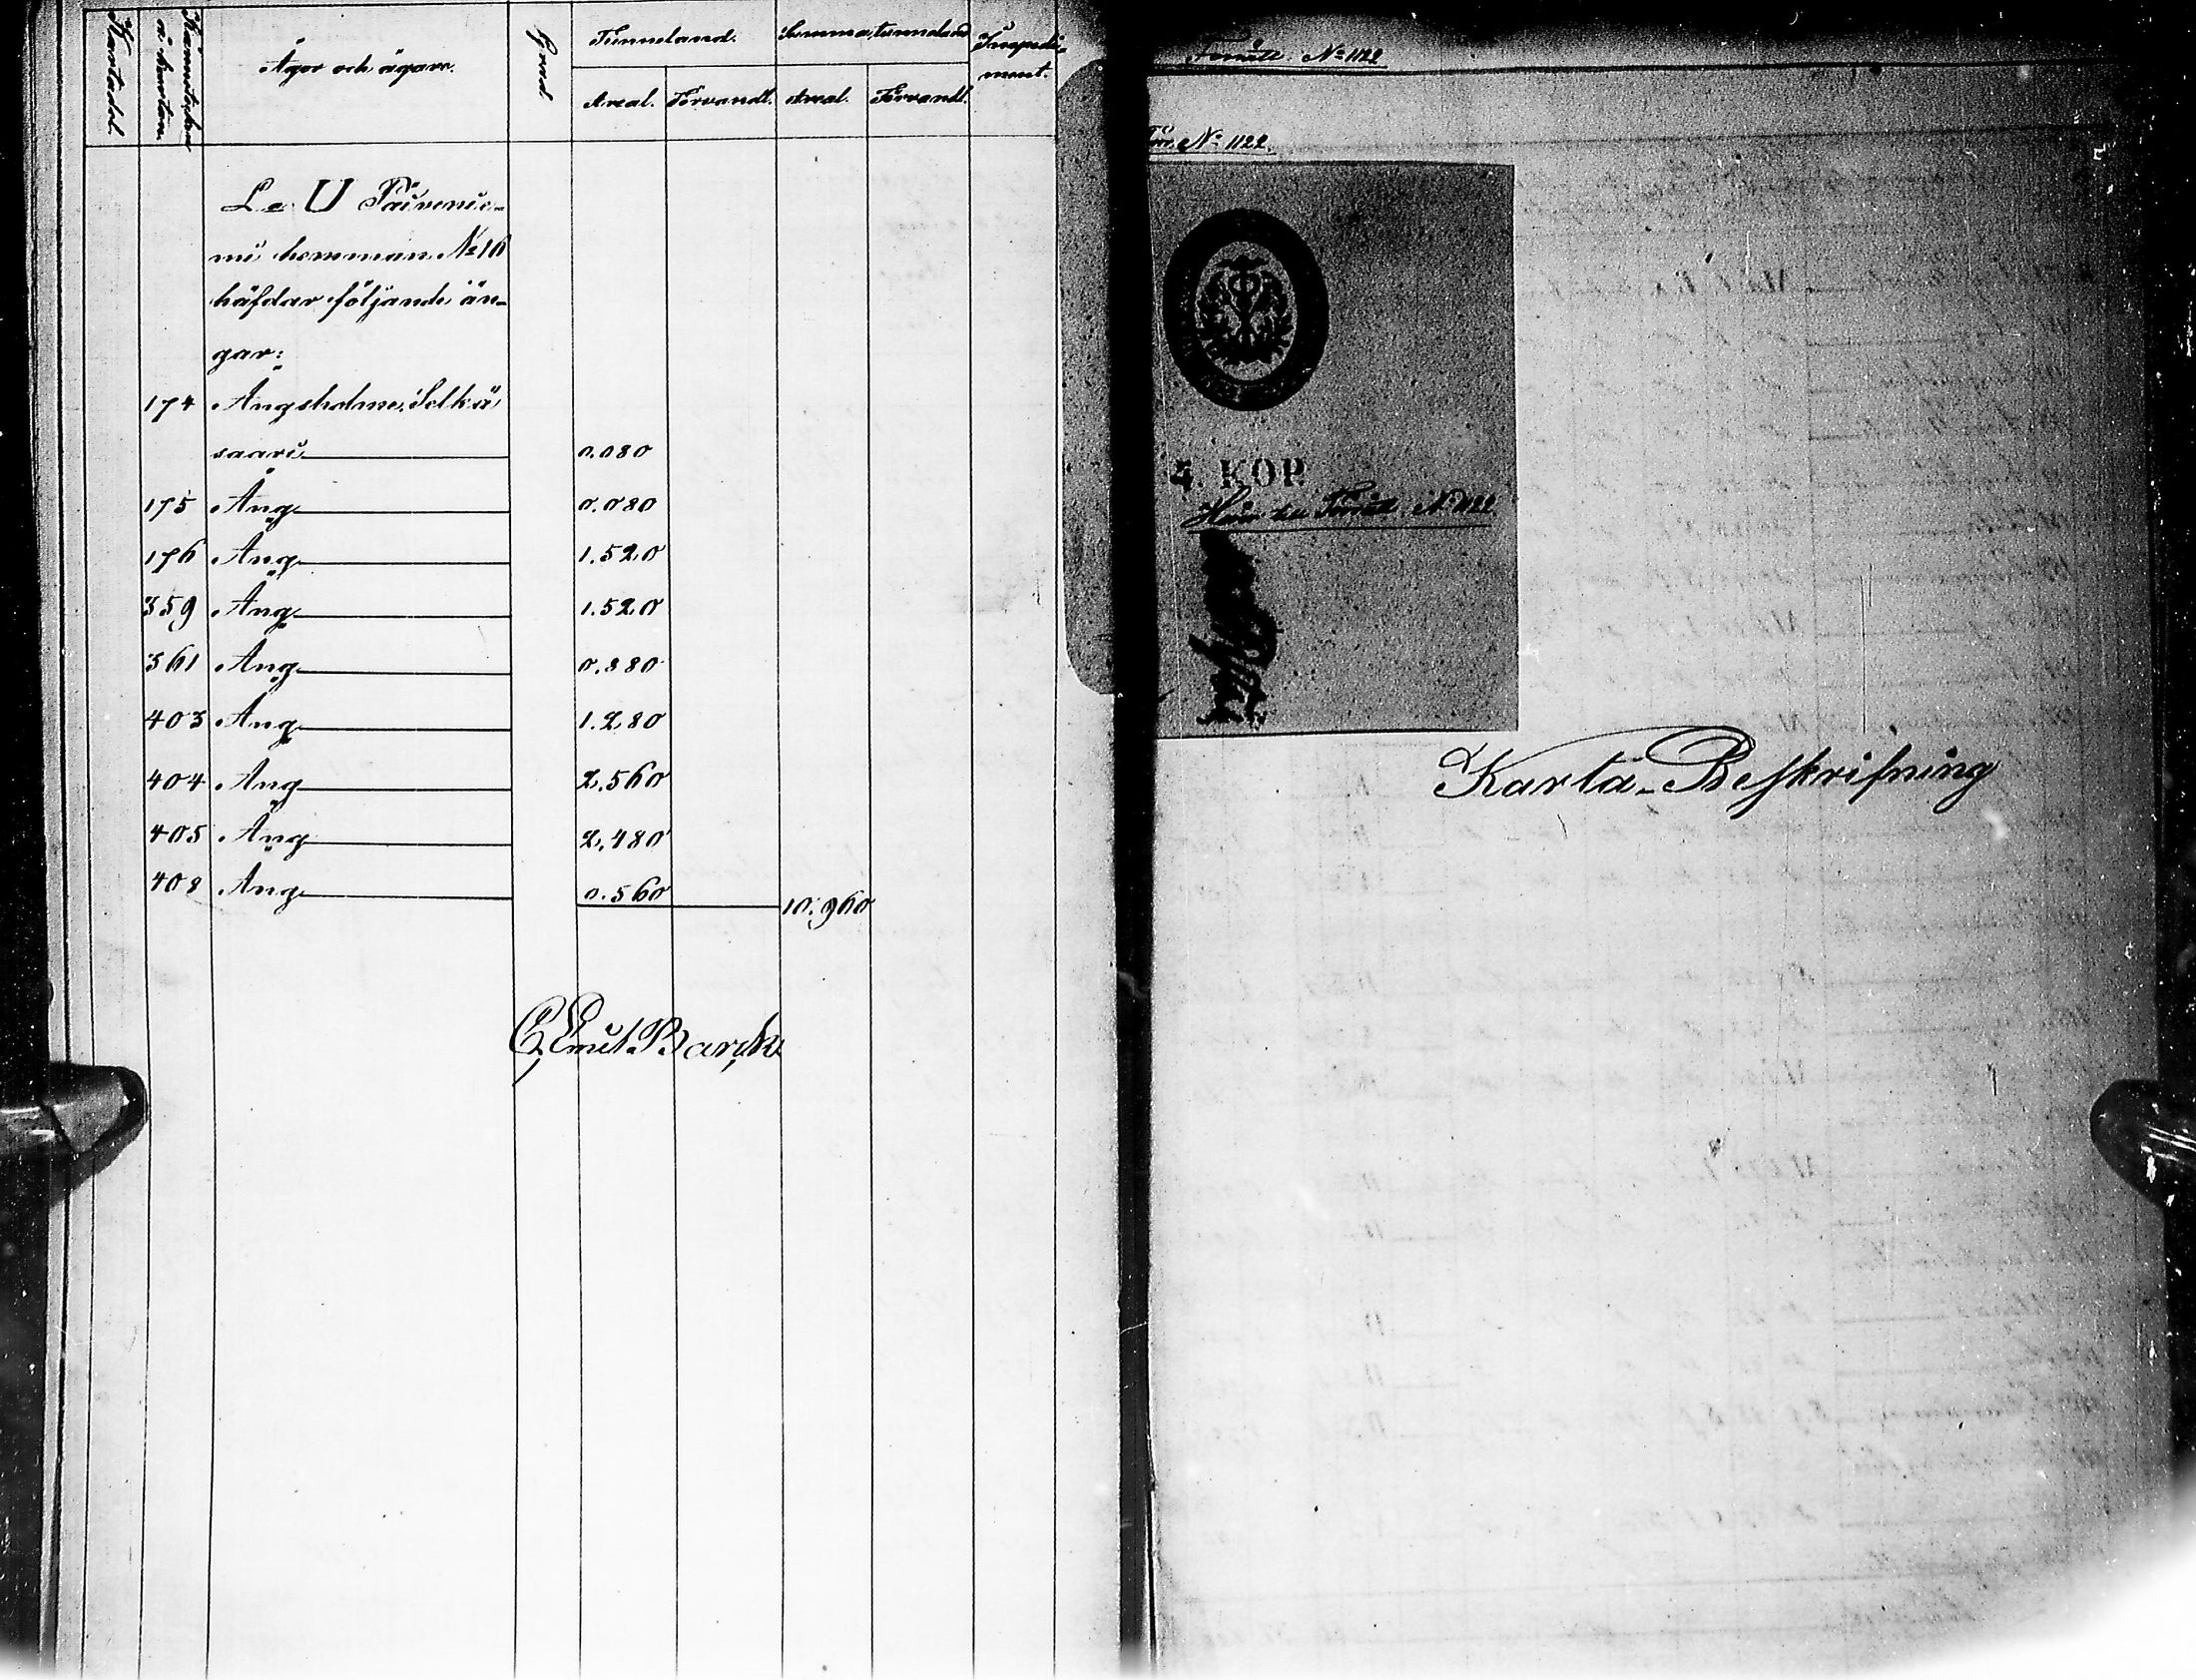 Kartadel.
Kännetecken
å kartan.
Ägor och ägare.
Grad.
Tunneland.
Areal. Förvandl.
Summa, tunneland
Areal. Förvandl.
Impedi-
ment.
La U Päivenie-
mi hemman №16
häfdar följande än-
gar:
174 Ängsholme, Selkä
saari 0.080
175 Äng 0.080
176 Äng 1.520
359 Äng 1.520
361 Äng 0.880
403 Äng 1.280
404 Äng 2.560
405 Äng 2.480
408 Äng 0.560 10.960
C. Emil
№ 1122
№ 1122
4. KOP.
Hör till № 1122
Karta-Beskrifning